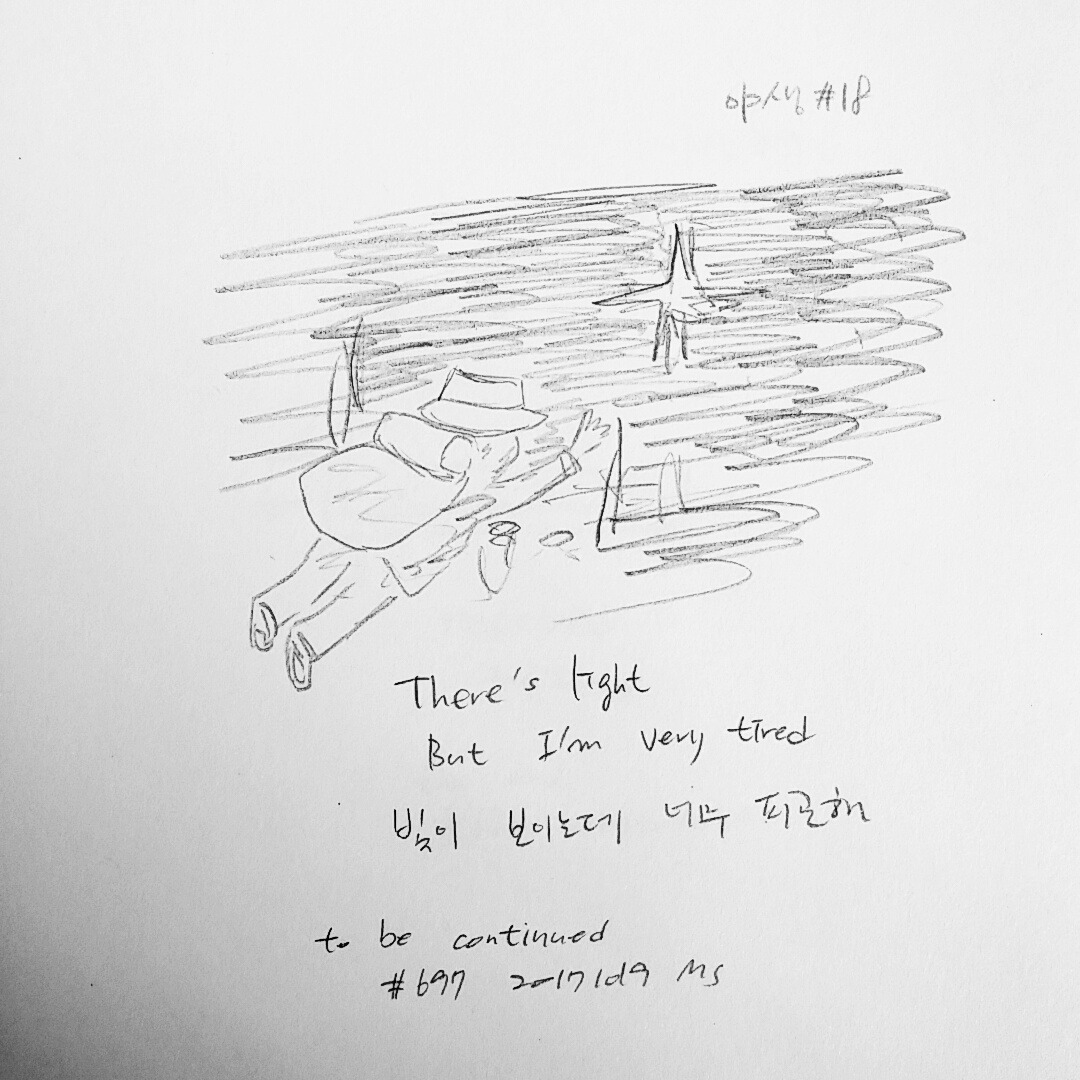 야생 #18
There's light
But I'm very tired
빛이 보이는데 너무 피곤해
to be continued
#697 20171019 MS